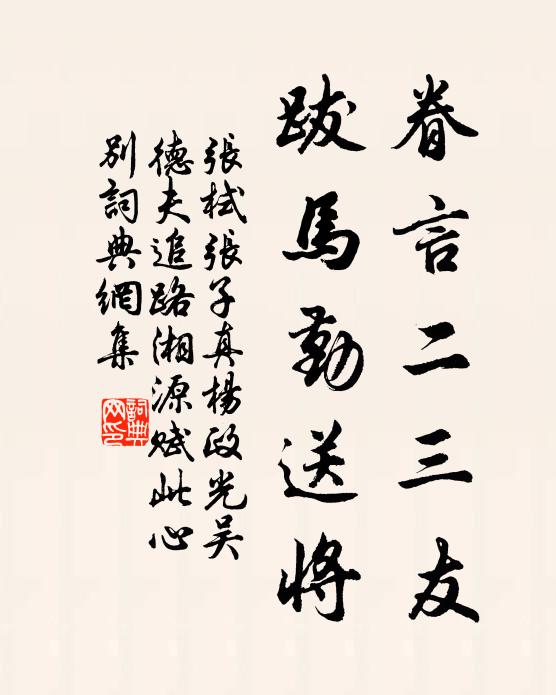 眷言二三友
跋馬勤送將
張栻張子真楊政光吴
德夫追路湘源賦此心
別詞典網集
詞典
网印